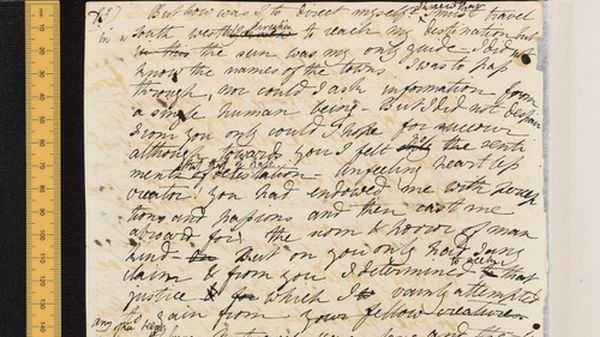 But how was I to direct myself? I knew that I must travel
in a south westerly direction to reach my destination but
in this the sun was my only guide - I did not
know the names of the towns I was to pass
through, nor could I ask information from
a single human being - But I did not despair
From you only could I hope for succour
although towards you I felt only the senti
ments of detestation - Unfeeling heartless
creator! you had endowed me with percep
tions and passions and then cast me
abroad for the scorn & horror of man
kind - But on you only had I any
claim & from you I determined to seek that
justice which I vainly attempted
to gain from your fellow creatures
any other being